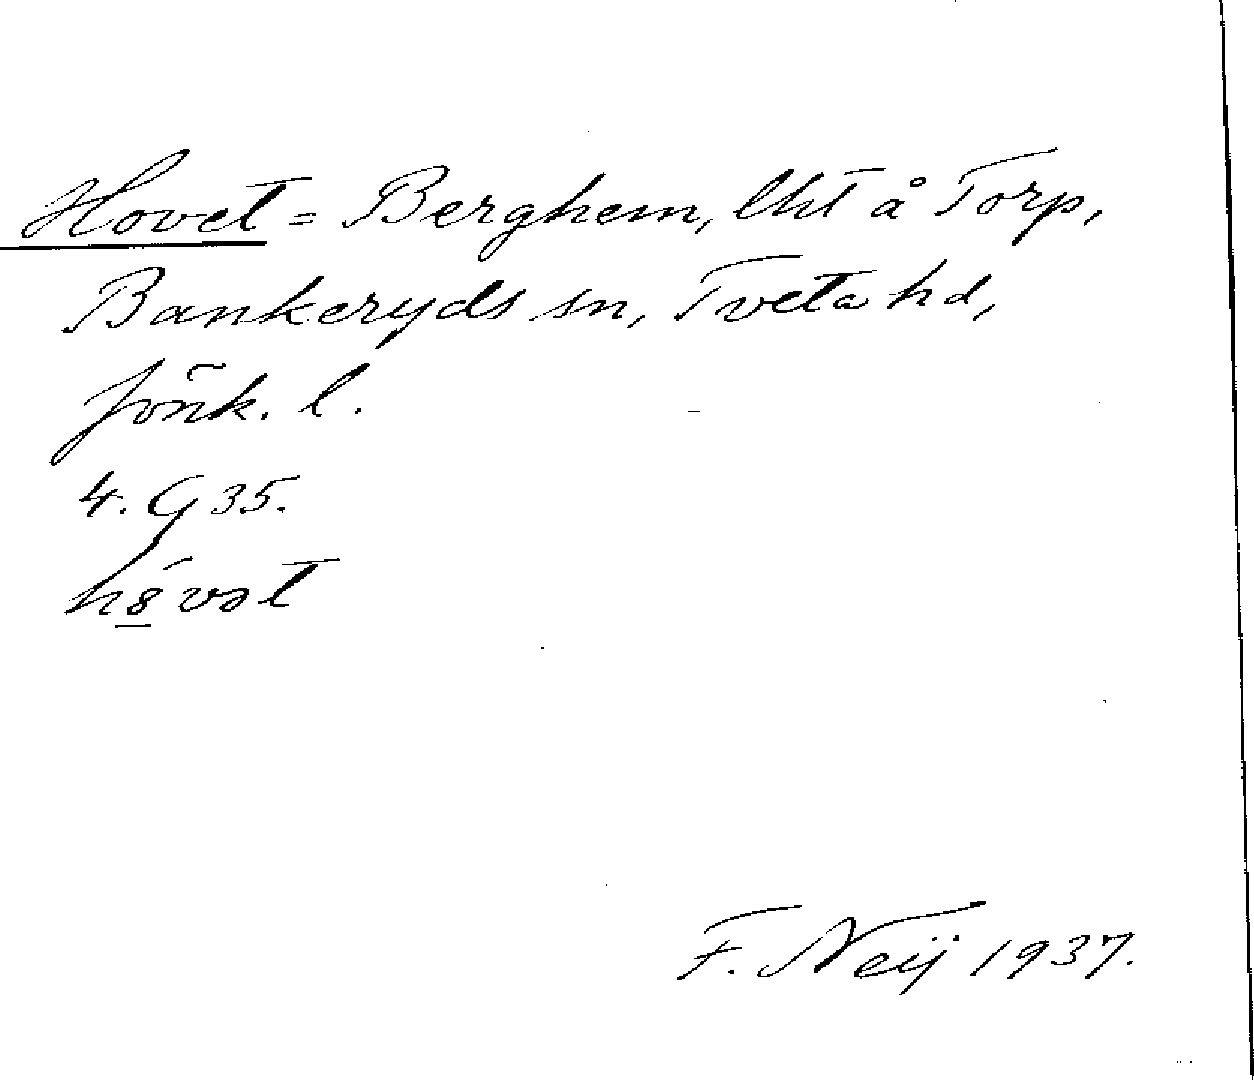 Hovet = Berghem, lht å Torp,
Bankeryds sn, Tveta hd,
Jönk. l.
4. G 35.
F. Neij 1937.